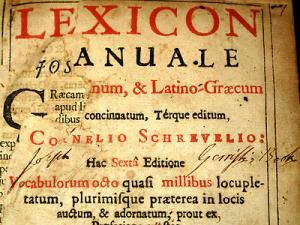 LEXICON
ANUALE
JOS
GRÆCAM num, & Latino-Græcum
apud l
dibus concinnatum, Térque editum,
CORNELIO SCHREVELIO:
Joseph
Hac Sextâ Editione
Vocabulorum octo quasi millibus locuple-
tatum, plurimisque præterea in locis
auctum, & adornatum; prout ex,